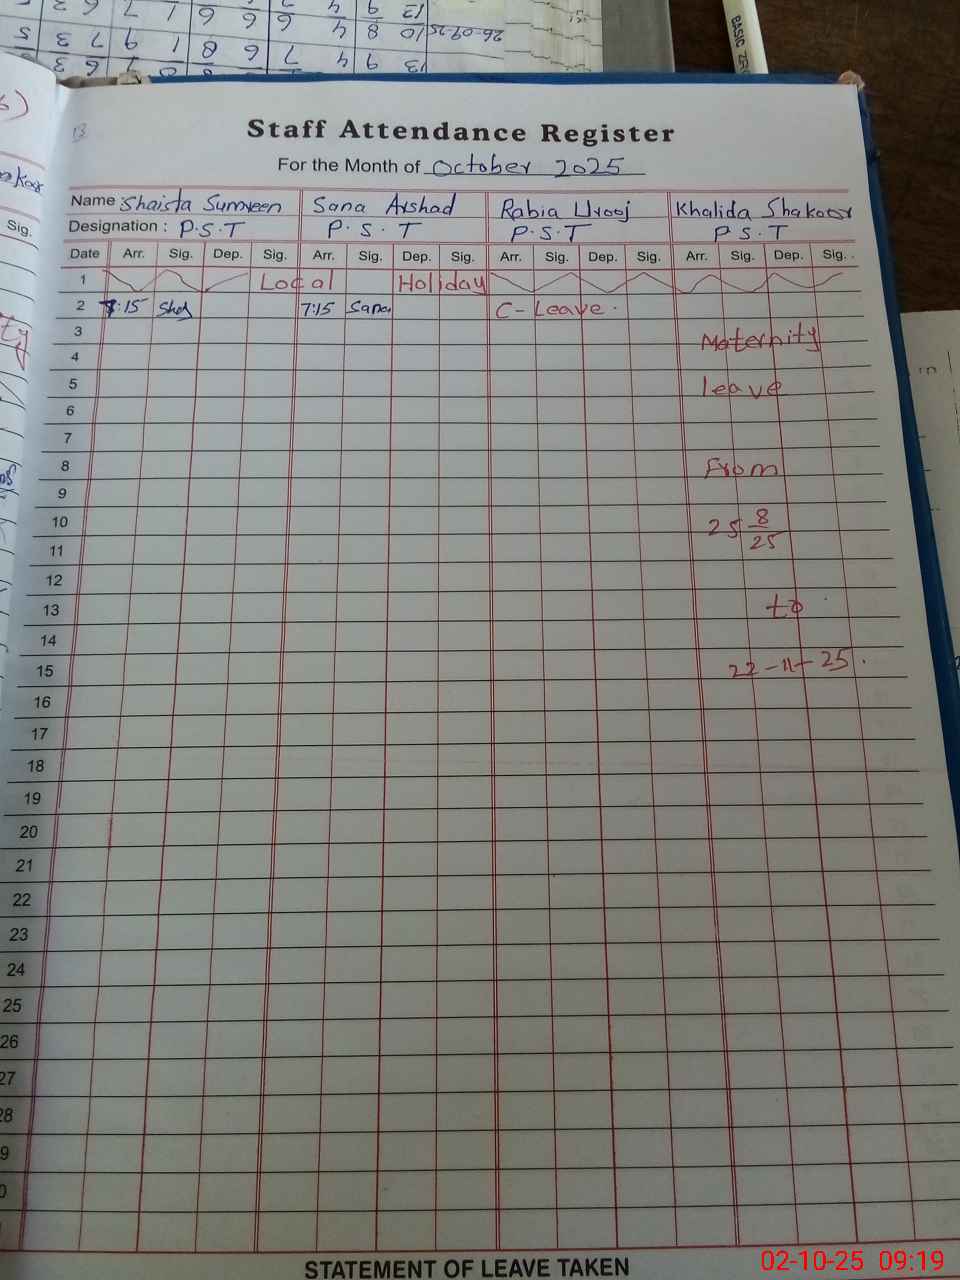 26-09-25
BASIC
13
Staff Attendance Register
For the Month of October 2025
Name : Shaista Sumreen Sana Arshad Rabia Urooj Khalida Shakoor
Designation : P.S.T P.S.T P.S.T P.S.T
Date Arr. Sig. Dep. Sig. Arr. Sig. Dep. Sig. Arr. Sig. Dep. Sig. Arr. Sig. Dep. Sig.
1 Local Holiday
2 7:15 7:15 Sana C-Leave.
3 Maternity
4
5 leave
6
7
8 From
9
10 25 8/25
11
12
13 to
14
15 22-11-25.
16
17
18
19
20
21
22
23
24
25
26
27
28
9
0
STATEMENT OF LEAVE TAKEN
02-10-25 09:19